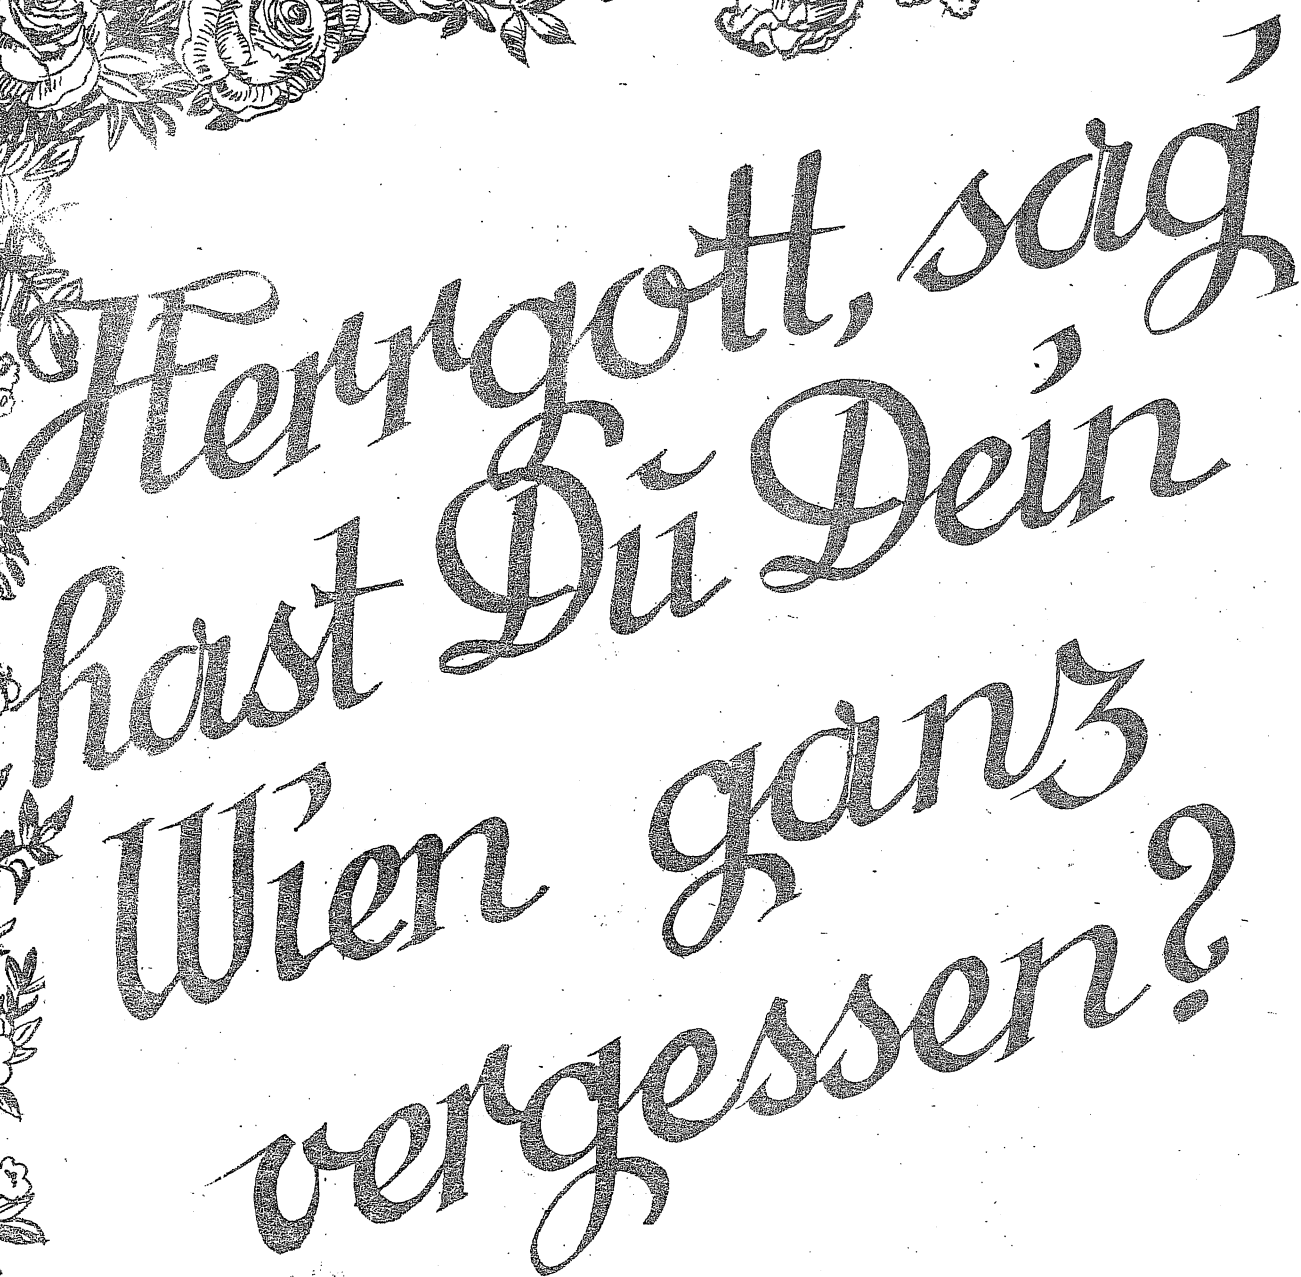 Herrgott, sag'
hast Du Dein
Wien ganz
vergessen?